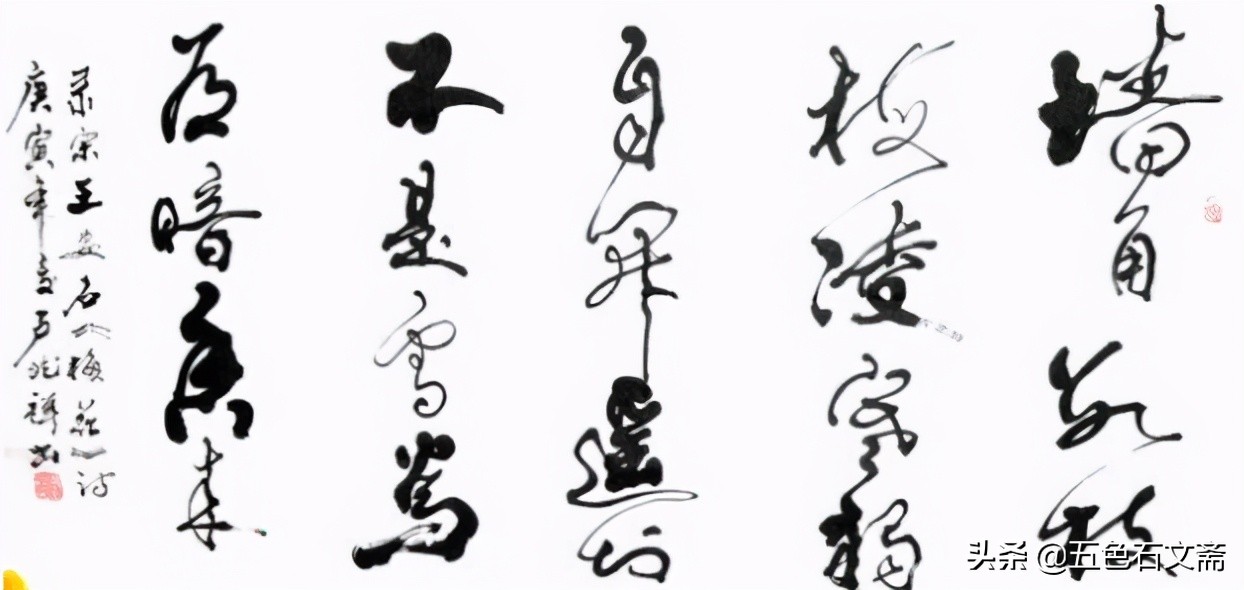 墙角数枝
梅凌寒独
自開遥知
不是雪為
有暗香来
录宋王安石《梅花》诗
庚寅年
头条 @五色石文斋